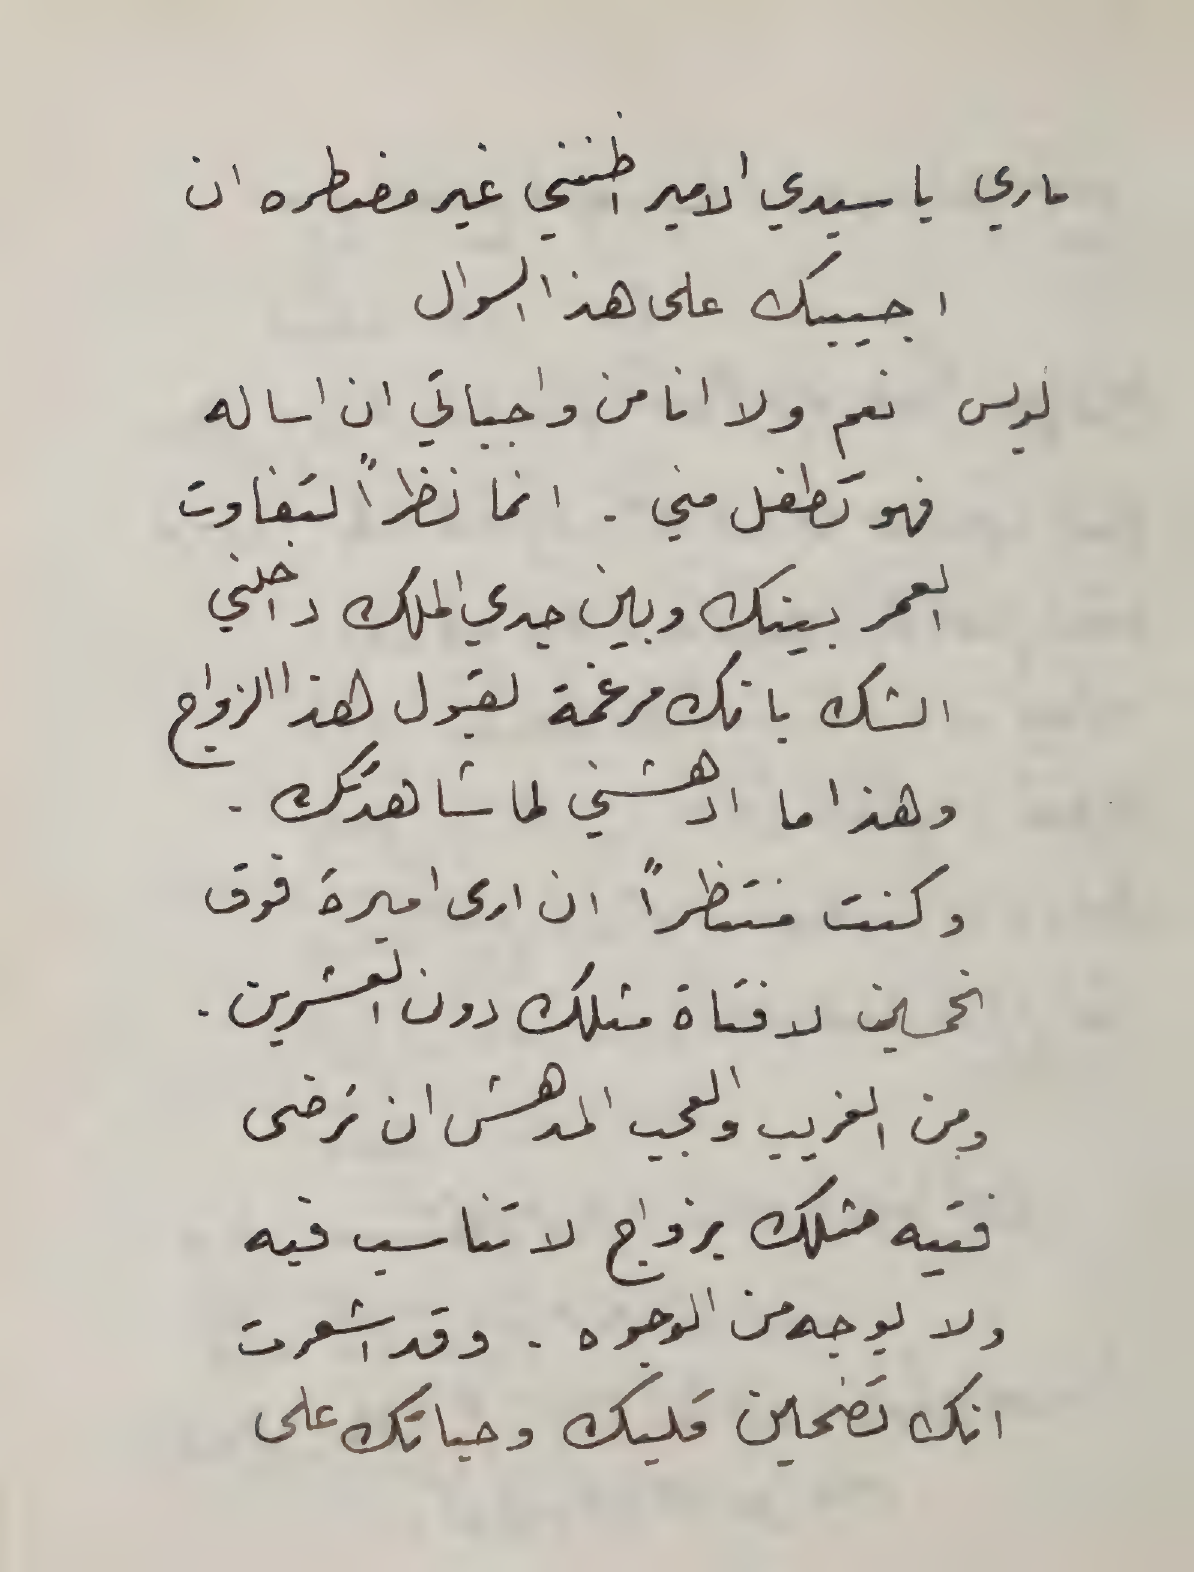 ماري يا سيدي الامير اظنني غير مضطره ان
اجيبك على هذا السوال
لويس نعم ولا انا من واجباتي ان اساله
فهو تطفل مني . انما نظراً لتفاوت
العمر بينك وبين جدي الملك داخلني
الشك بانك مرغمة لقبول هذا الزواج
وهذا ما ادهشني لما شاهدتك .
وكنت منتظراً ان ارى اميرة فوق
الخمسين لا فتاة مثلك دون العشرين .
ومن الغريب والعجيب المدهش ان ترضى
فتيه مثلك بزواج لا تناسب فيه
ولا بوجه من الوجوه . وقد اشعرت
انك تضحين قلبك وحياتك على